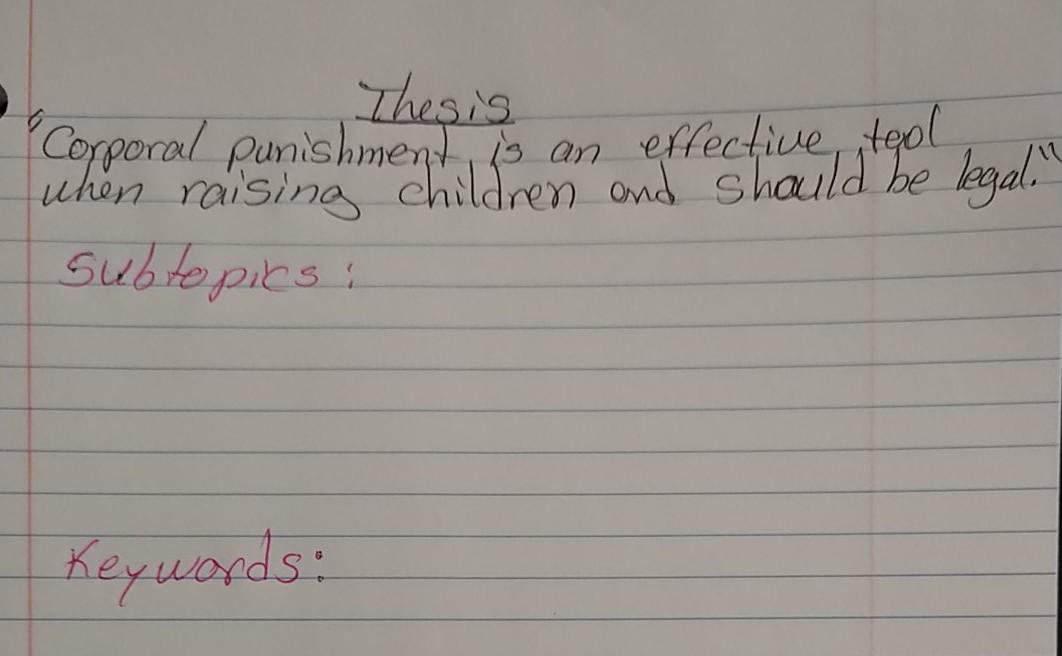 Thesis
"Corporal punishment is an effective tool
when raising children and should be legal."
Subtopics:
Keywords: